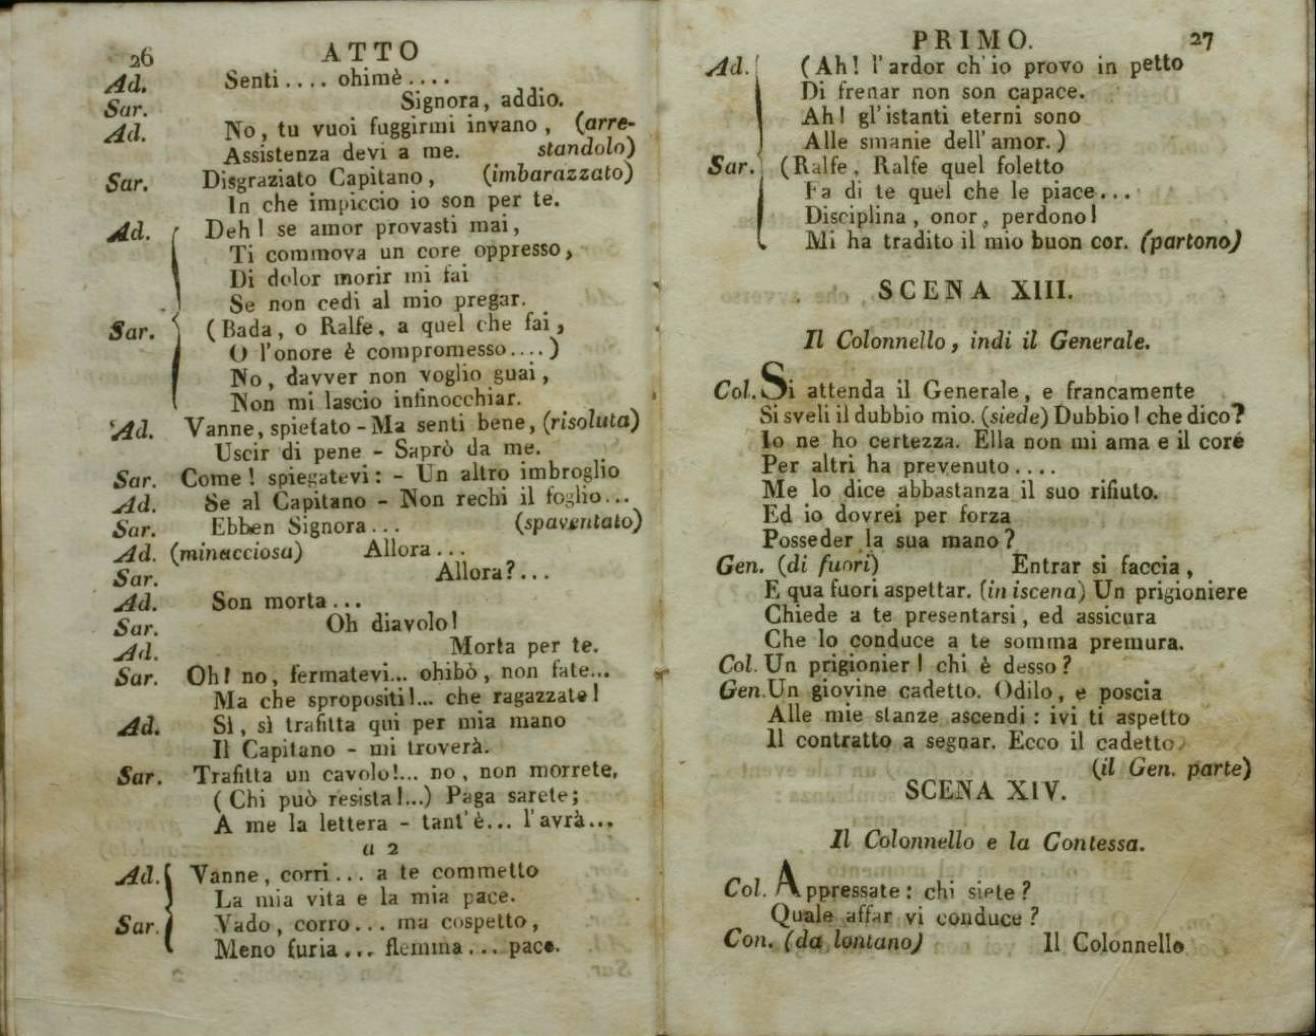 26 ATTO
Ad. Senti.... ohimè....
Sar. Signora, addio.
Ad. No, tu vuoi fuggirmi invano, (arre-
Assistenza devi a me. standolo)
Sar. Disgraziato Capitano, (imbarazzato)
In che impiccio io son per te.
Ad. Deh! se amor provasti mai,
Ti commova un core oppresso,
Di dolor morir mi fai
Se non cedi al mio pregar.
Sar. (Bada, o Ralfe, a quel che fai,
O l'onore è compromesso....)
No, davver non voglio guai,
Non mi lascio infinocchiar.
Ad. Vanne, spietato - Ma senti bene, (risoluta)
Uscir di pene - Saprò da me.
Sar. Come! spiegatevi: - Un altro imbroglio
Ad. Se al Capitano - Non rechi il foglio...
Sar. Ebben Signora... (spaventato)
Ad. (minacciosa) Allora...
Sar. Allora?...
Ad. Son morta...
Sar. Oh diavolo!
Ad. Morta per te.
Sar. Oh! no, fermatevi... ohibò, non fate...
Ma che spropositi!... che ragazzate!
Ad. Sì, sì trafitta qui per mia mano
Il Capitano - mi troverà.
Sar. Trafitta un cavolo!... no, non morrete,
(Chi può resista!...) Paga sarete;
A me la lettera - tant'è... l'avrà...
a 2
Ad. Vanne, corri... a te commetto
La mia vita e la mia pace.
Sar. Vado, corro... ma cospetto,
Meno furia... flemma... pace.
PRIMO. 27
Ad. (Ah! l'ardor ch'io provo in petto
Di frenar non son capace.
Ah! gl'istanti eterni sono
Alle smanie dell'amor.)
Sar. (Ralfe, Ralfe quel foletto
Fa di te quel che le piace...
Disciplina, onor, perdono!
Mi ha tradito il mio buon cor. (partono)
SCENA XIII.
Il Colonnello, indi il Generale.
Col. Si attenda il Generale, e francamente
Si sveli il dubbio mio. (siede) Dubbio! che dico?
Io ne ho certezza. Ella non mi ama e il core
Per altri ha prevenuto....
Me lo dice abbastanza il suo rifiuto.
Ed io dovrei per forza
Posseder la sua mano?
Gen. (di fuori) Entrar si faccia,
E qua fuori aspettar. (in iscena) Un prigioniere
Chiede a te presentarsi, ed assicura
Che lo conduce a te somma premura.
Col. Un prigionier! chi è desso?
Gen. Un giovine cadetto. Odilo, e poscia
Alle mie stanze ascendi: ivi ti aspetto
Il contratto a segnar. Ecco il cadetto.
(il Gen. parte)
SCENA XIV.
Il Colonnello e la Contessa.
Col. Appressate: chi siete?
Quale affar vi conduce?
Con. (da lontano) Il Colonnello